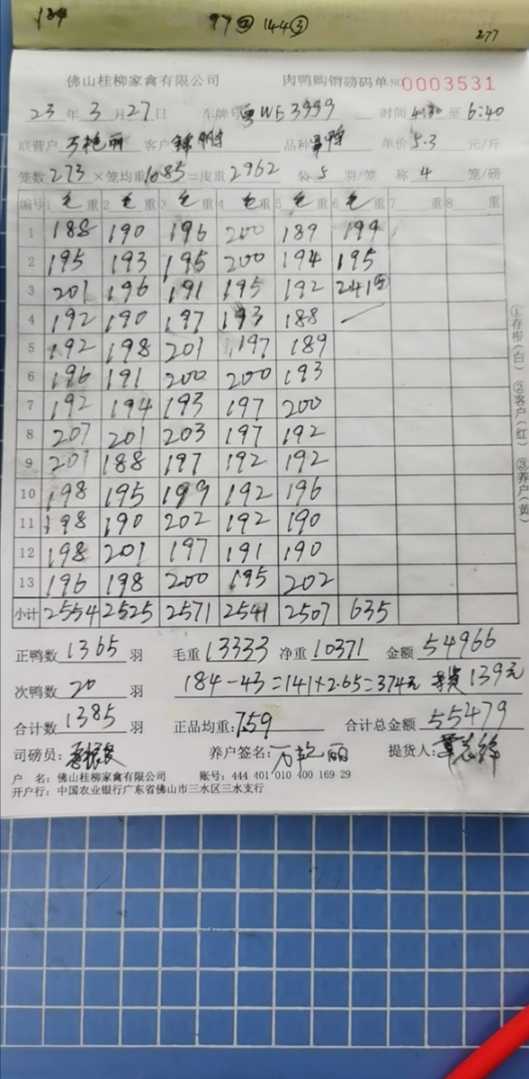 184 97④ 144③ 277
佛山桂柳家禽有限公司 肉鸭购销磅码单 № 0003531
23 年 3 月 27 日 车牌号 粤WE3999 时间 4:30 至 6:40
联营户 万艳丽 客户 品种 单价 5.3 元/斤
笼数 273 × 笼均重 1085 = 皮重 2962 装 5 羽/笼 称 4 笼/磅
编号 1 毛 重 2 毛 重 3 毛 重 4 毛 重 5 毛 重 6 毛 重 7 重 8 重
1 188 190 196 200 189 199
2 195 193 195 200 194 195
3 201 196 191 195 192 241⑤
4 192 190 197 193 188
5 192 198 201 197 189
6 196 191 200 200 193
7 192 194 193 197 200
8 207 201 203 197 192
9 201 188 197 192 192
10 198 195 199 192 196
11 198 190 202 192 190
12 198 201 197 191 190
13 196 198 200 195 202
小计 2554 2525 2571 2541 2507 635
正鸭数 1365 羽 毛重 13333 净重 10371 金额 54966
次鸭数 20 羽 184-43=141×2.65=374元 139元
合计数 1385 羽 正品均重: 7.59 合计总金额 55479
司磅员: 养户签名: 万艳丽 提货人:
户 名: 佛山桂柳家禽有限公司 账号: 444 401 010 400 169 29
开户行: 中国农业银行广东省佛山市三水区三水支行
①存根(白) ②客户(红) ③养户(黄)